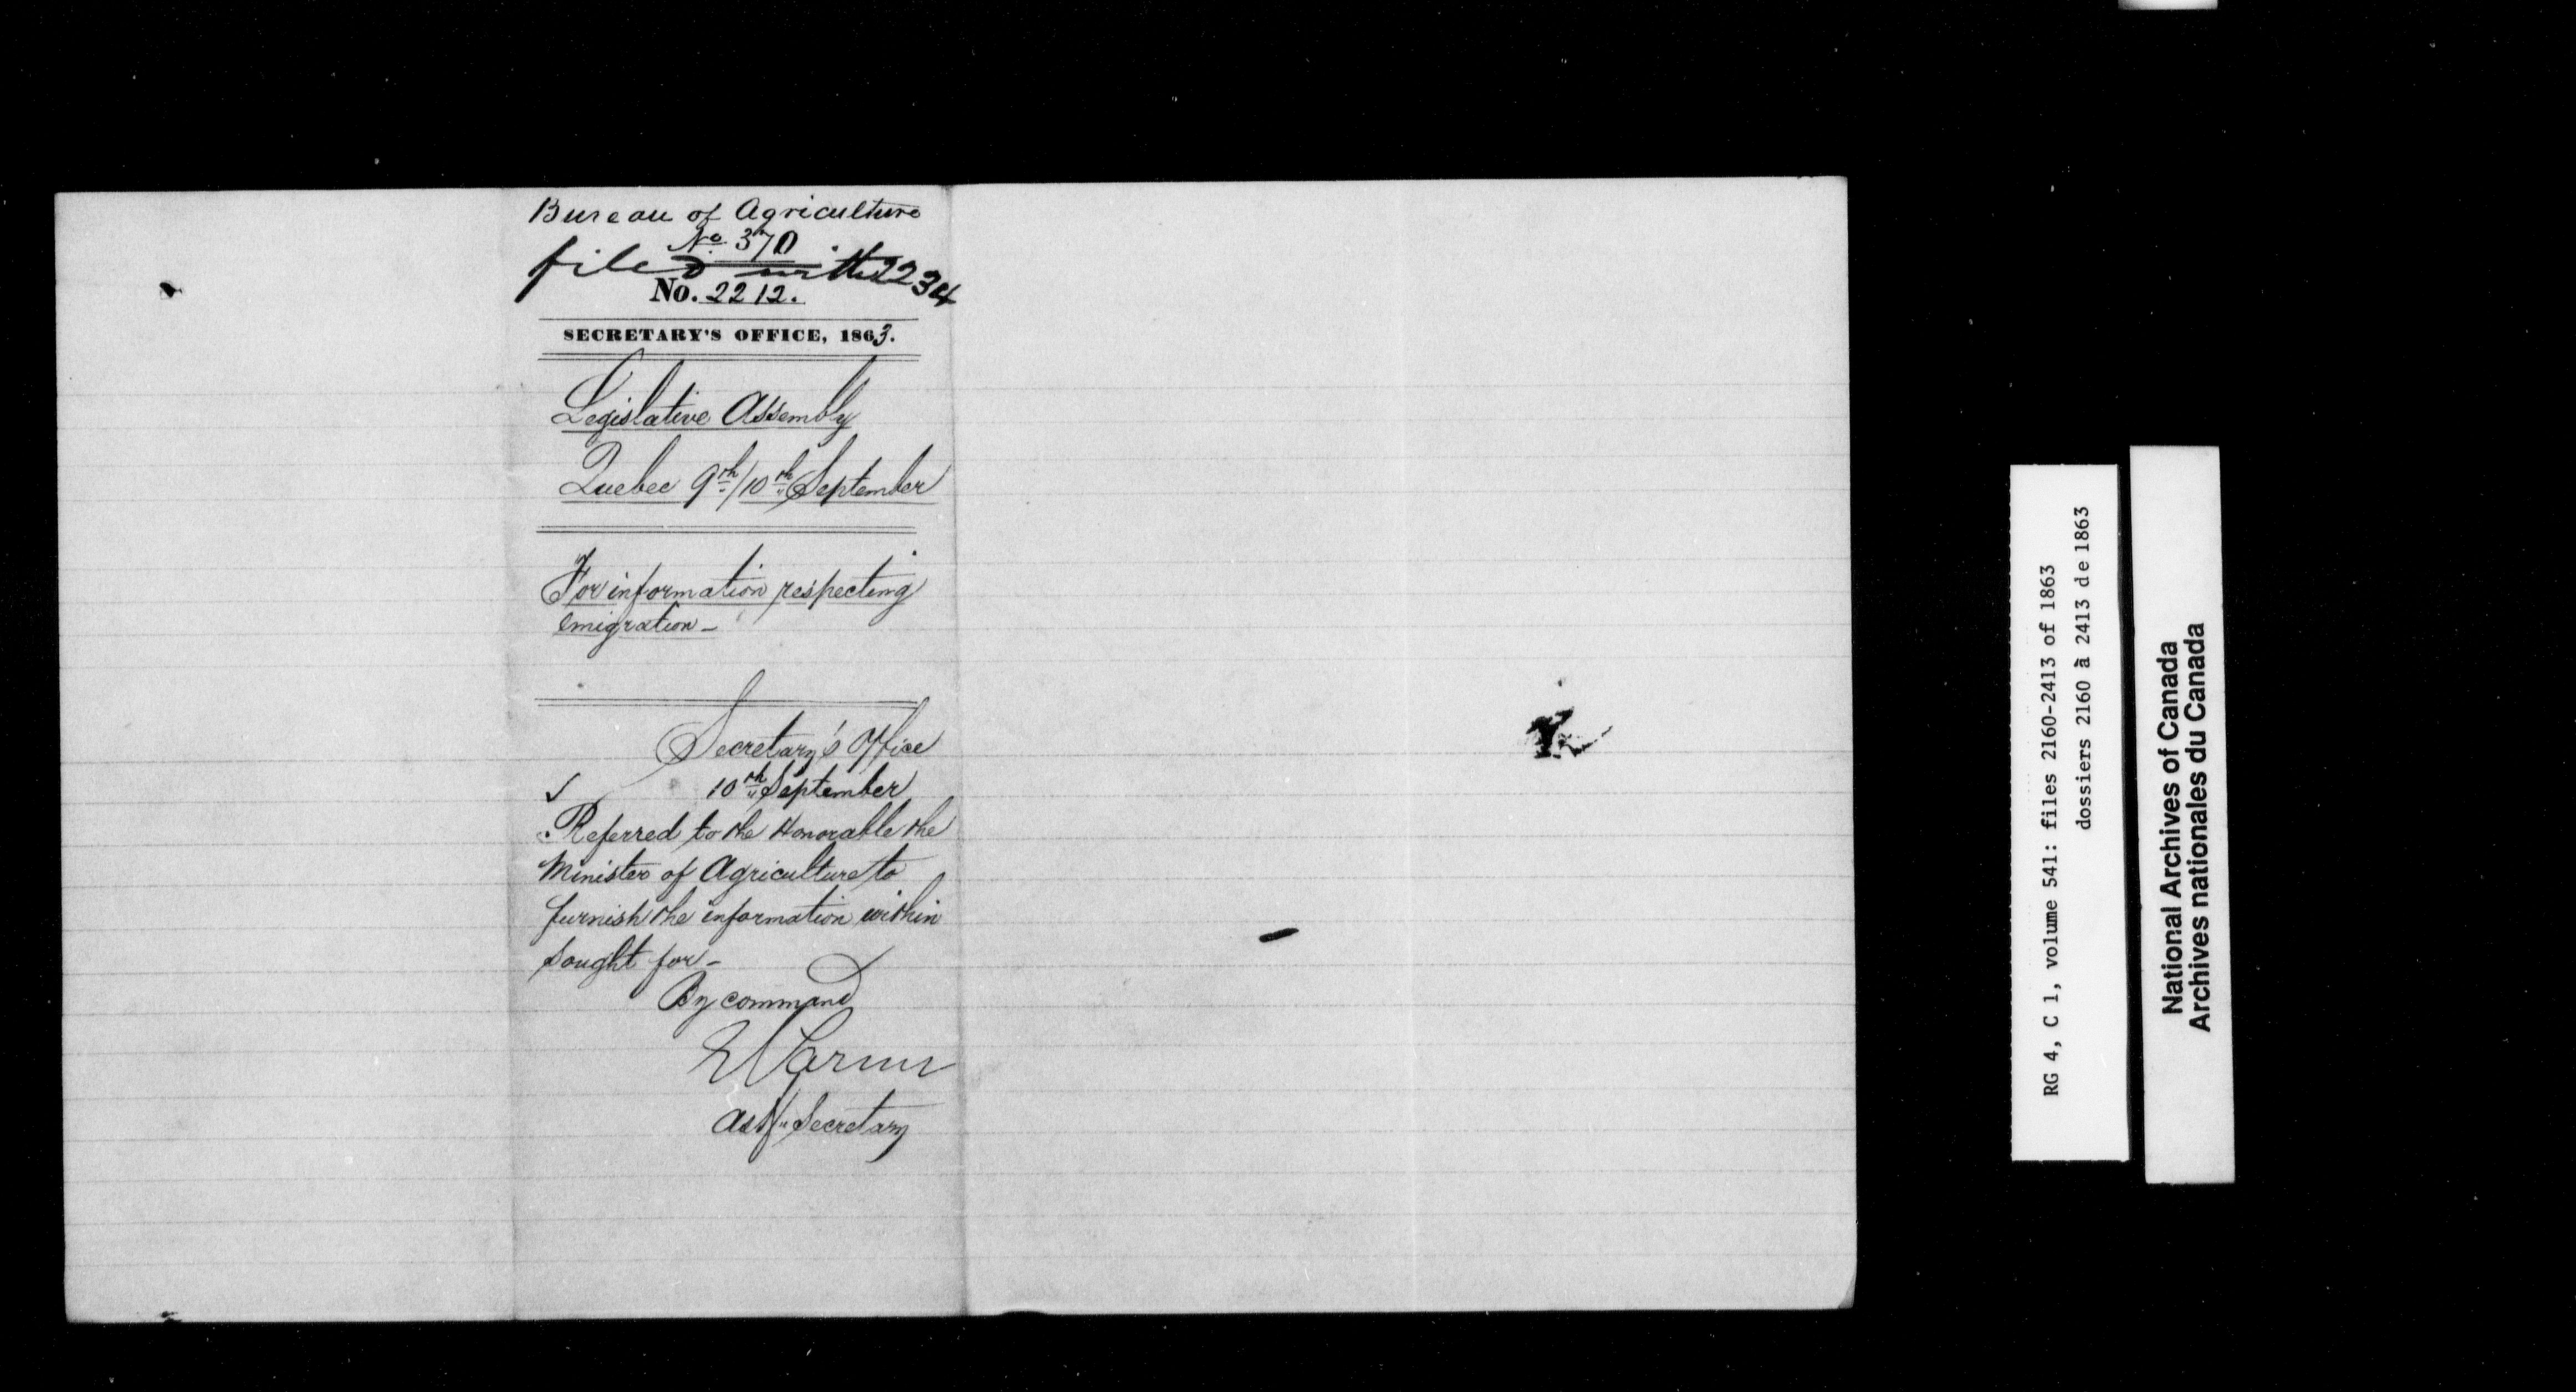 Bureau of Agriculture
No. 370
filed with 2234
No. 2212.
SECRETARY'S OFFICE, 1863.
Legislative Assembly
Quebec 9th/10th September
For information respecting
emigration -
Secretary's Office
10th September
Referred to the Honorable the
Minister of Agriculture to
furnish the information within
sought for -
By command
Asst. Secretary
RG 4, C 1, volume 541: files 2160-2413 of 1863
dossiers 2160 à 2413 de 1863
National Archives of Canada
Archives nationales du Canada